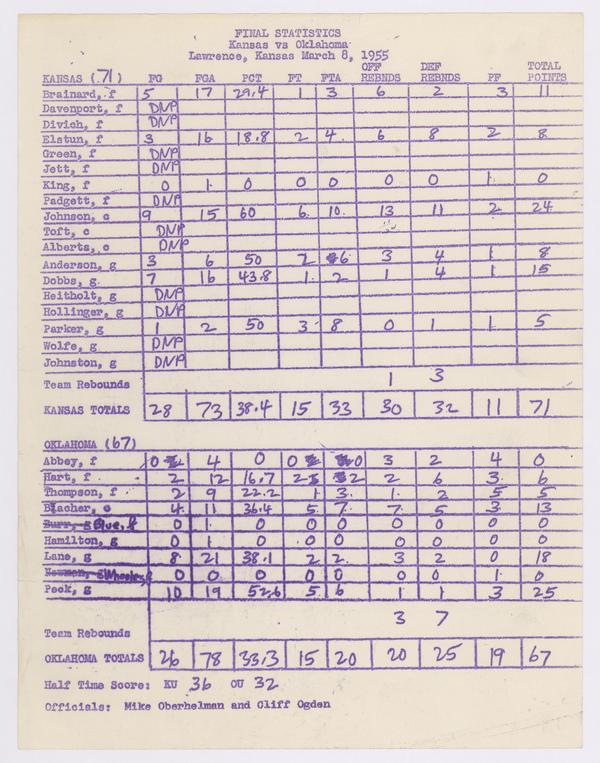 FINAL STATISTICS
Kansas vs Oklahoma
Lawrence, Kansas March 8, 1955
KANSAS (71) FG FGA PCT FT FTA OFF REBNDS DEF REBNDS PF TOTAL POINTS
Brainard, f 5 17 29.4 1 3 6 2 3 11
Davenport, f DNP
Divich, f DNP
Elstun, f 3 16 18.8 2 4 6 8 2 8
Green, f DNP
Jett, f DNP
King, f 0 1 0 0 0 0 0 1 0
Padgett, f DNP
Johnson, c 9 15 60 6 10 13 11 2 24
Toft, c DNP
Alberts, c DNP
Anderson, g 3 6 50 2 6 3 4 1 8
Dobbs, g 7 16 43.8 1 2 1 4 1 15
Heitholt, g DNP
Hollinger, g DNP
Parker, g 1 2 50 3 8 0 1 1 5
Wolfe, g DNP
Johnston, g DNP
Team Rebounds 1 3
KANSAS TOTALS 28 73 38.4 15 33 30 32 11 71
OKLAHOMA (67)
Abbey, f 0 4 0 0 0 3 2 4 0
Hart, f 2 12 16.7 2 2 2 6 3 6
Thompson, f 2 9 22.2 1 3 1 2 5 5
Blacher, c 4 11 36.4 5 7 7 5 3 13
Burr, g Blue, f 0 1 0 0 0 0 0 0 0
Hamilton, g 0 1 0 0 0 0 0 0 0
Lane, g 8 21 38.1 2 2 3 2 0 18
Newman, g Wheeler, f 0 0 0 0 0 0 0 1 0
Peck, g 10 19 52.6 5 6 1 1 3 25
Team Rebounds 3 7
OKLAHOMA TOTALS 26 78 33.3 15 20 20 25 19 67
Half Time Score: KU 36 OU 32
Officials: Mike Oberhelman and Cliff Ogden